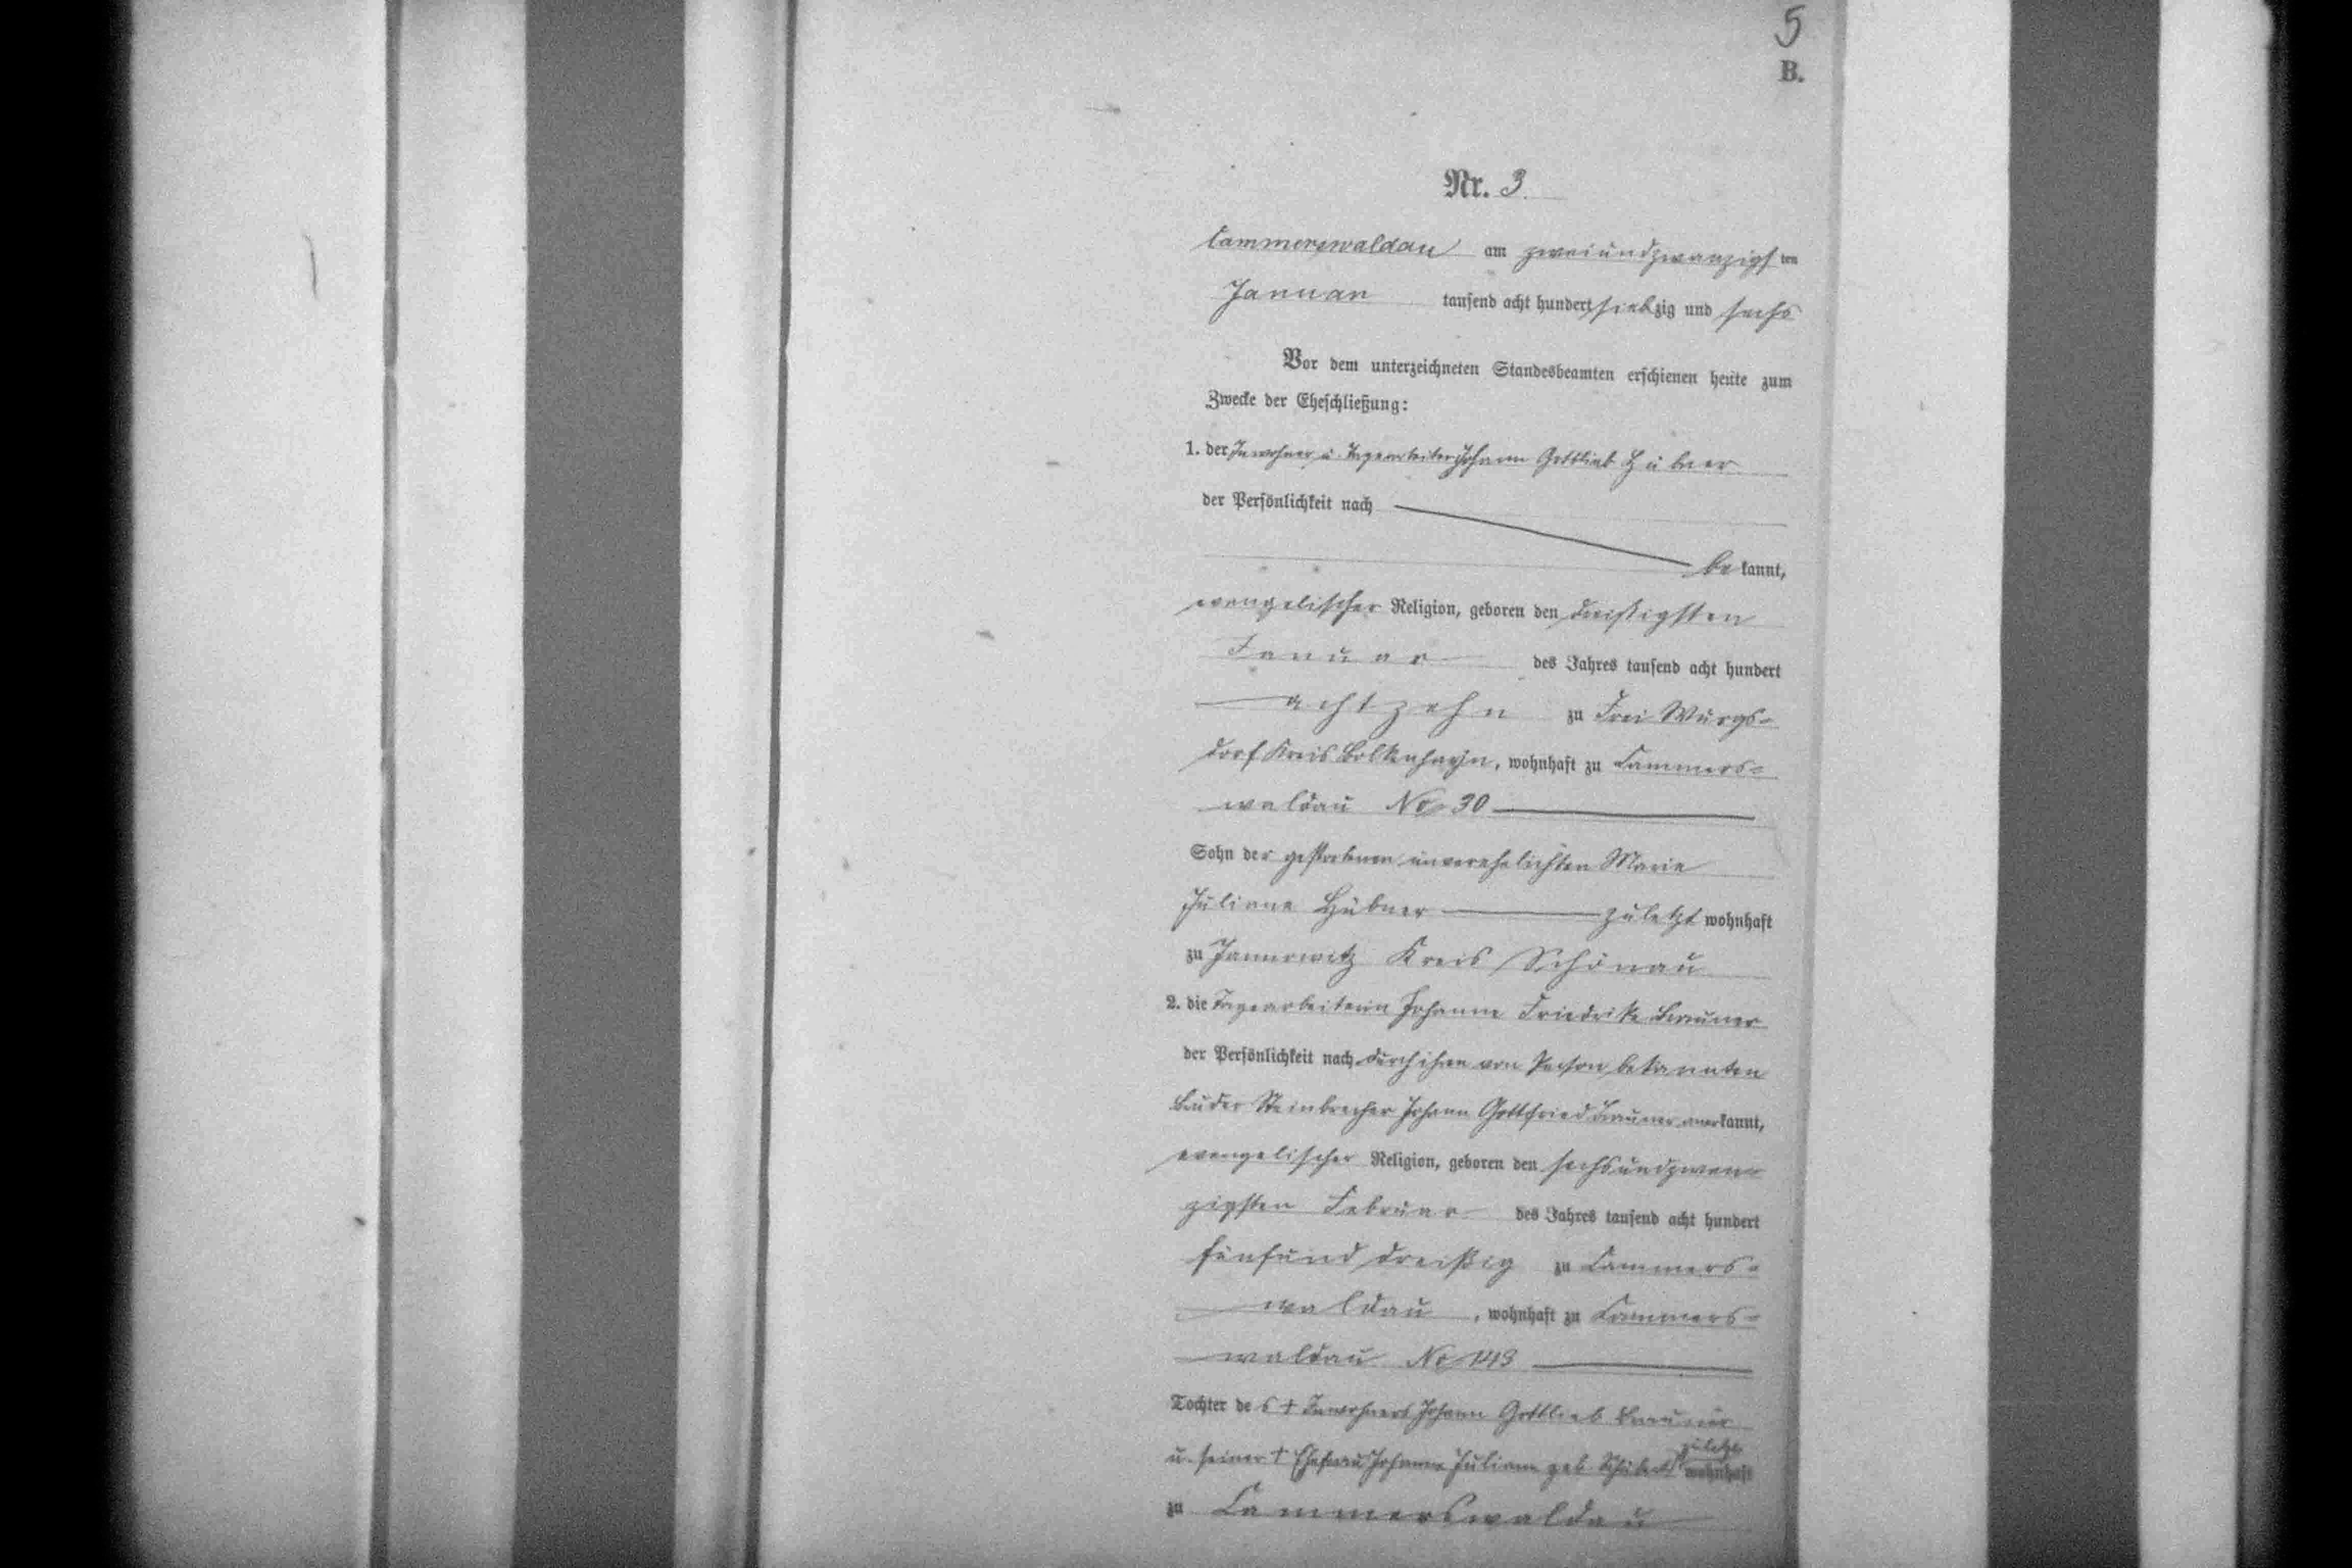 5
B.
Nr. 3.
Cammerswaldau am zweiundzwanzigsten
Januar tausend acht hundert siebzig und sechs
Vor dem unterzeichneten Standesbeamten erschienen heute zum
Zwecke der Eheschließung:
1. der Inwohner u. Tagearbeiter Johann Gottlieb Hübner
der Persönlichkeit nach
bekannt,
evangelischer Religion, geboren den dreißigsten
Januar des Jahres tausend acht hundert
achtzehn zu Frei Würgs-
dorf Kreis Bolkenhayn, wohnhaft zu Cammers-
waldau No 30
Sohn der gestorbenen unverehelichten Marie
Juliane Hübner zuletzt wohnhaft
zu Jannowitz Kreis Schönau
2. die Tagearbeiterin Johanne Friedrike Brauner
der Persönlichkeit nach durch ihren von Person bekannten
Bruder Steinbrecher Johann Gottfried Brauner anerkannt,
evangelischer Religion, geboren den sechsundzwan-
zigsten Februar des Jahres tausend acht hundert
fünfund dreißig zu Cammers-
waldau, wohnhaft zu Cammers-
waldau No 143
Tochter des † Inwohners Johann Gottlieb Brauner
u. seiner † Ehefrau Johanne Juliane geb. zuletzt wohnhaft
zu Cammerswaldau